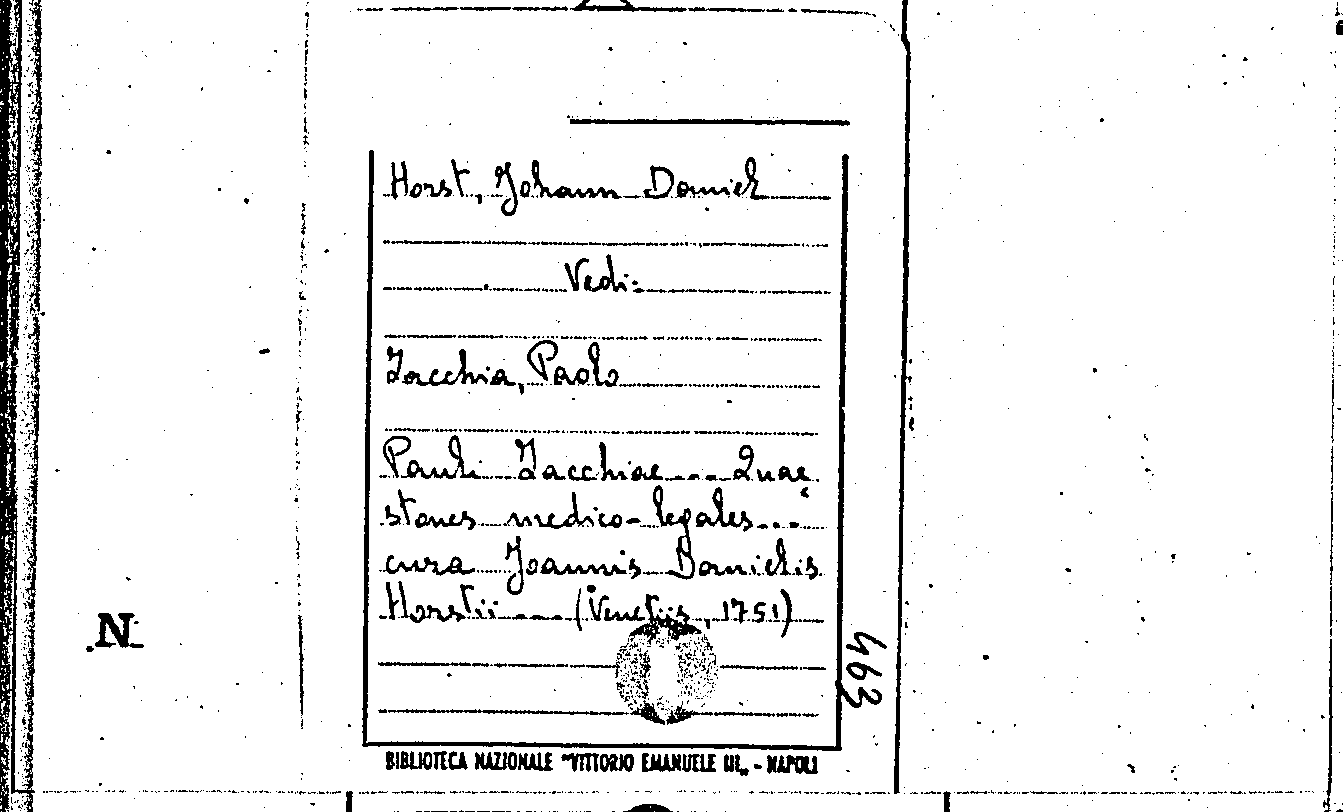 Horst, Johann Daniel
Vedi:
Zacchia, Paolo
Pauli Zacchiae ... Quae
stones medico-legales ...
cura Joannis Danielis
Horstii ... (Venetiis, 1751)
463
N
BIBLIOTECA NAZIONALE "VITTORIO EMANUELE III„ - NAPOLI